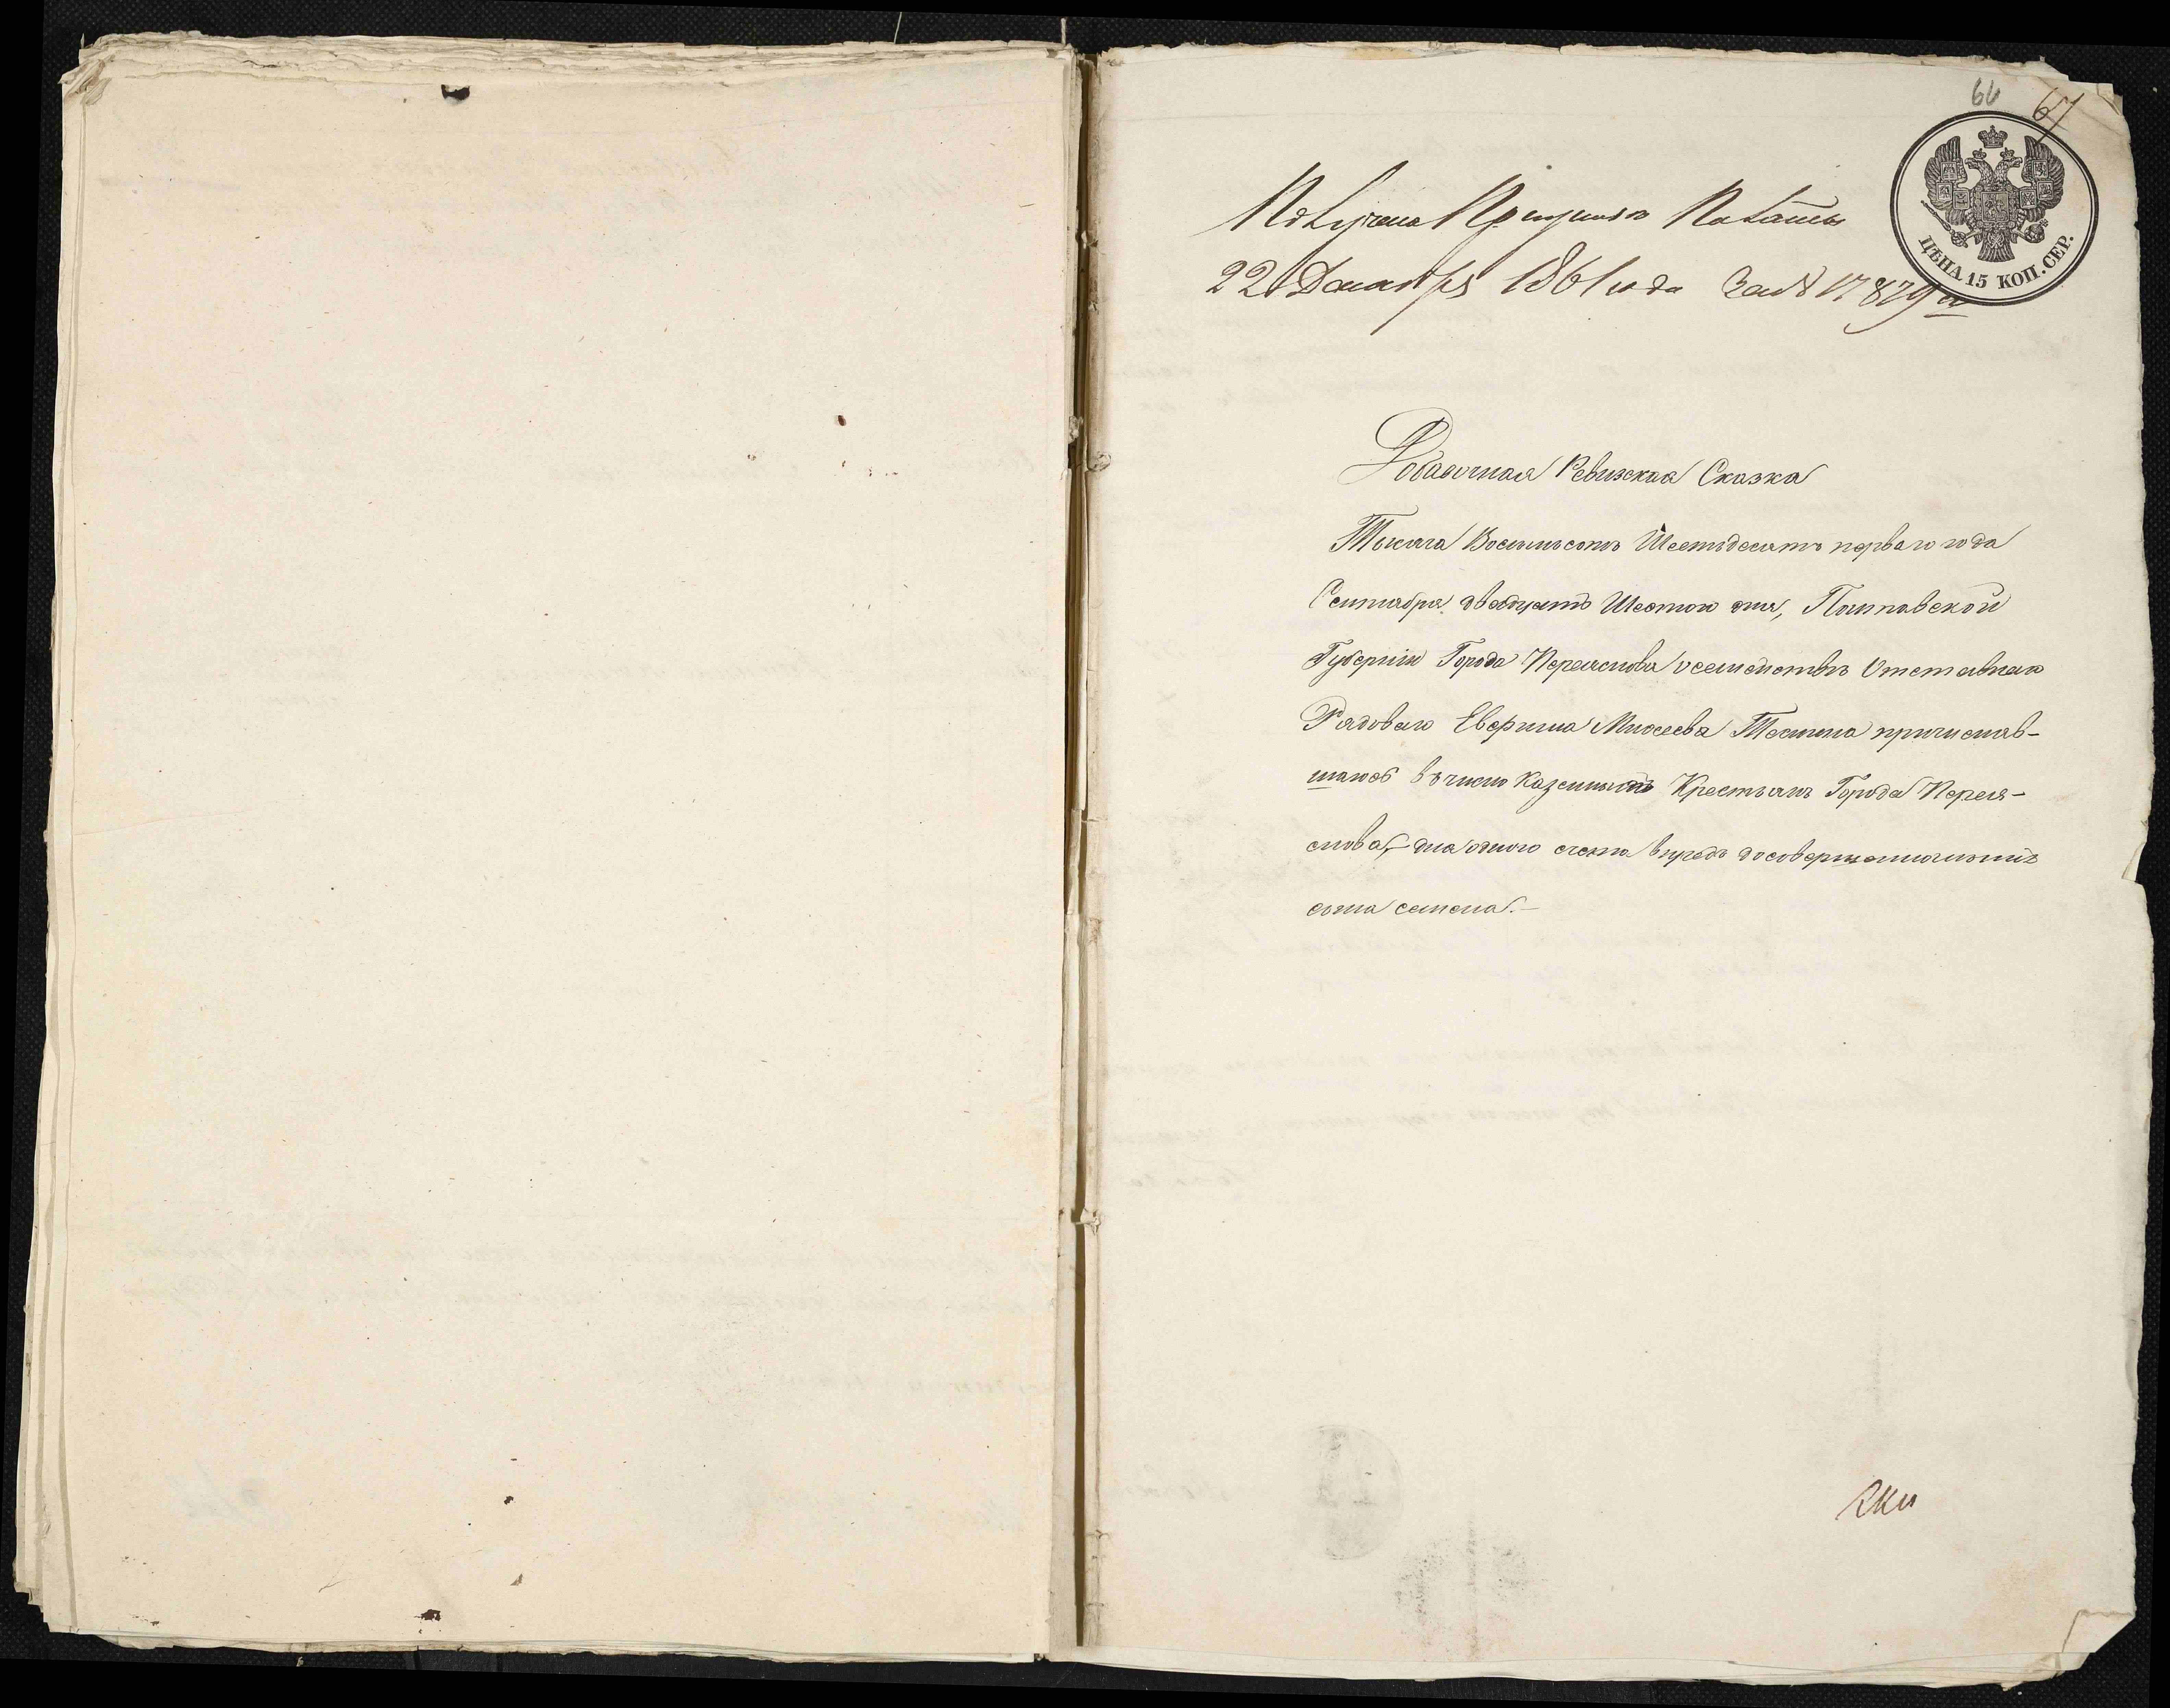 66
67
ЦѢНА 15 КОП. СЕР.
Получена при указѣ Палаты
22 Декабря 1861 года За № 17879
Добавочная Ревизская Сказка
Тысяча Восемьсотъ Шестьдесятъ перваго года
Сентября двадцать Шестого дня, Полтавской
Губерніи Города Переяслова о семействѣ Отставнаго
Рядоваго Мисеева причисляв-
шагося въ число Казенныхъ Крестьянъ Города Перея-
слова, для одного счета впредь до совершеннолѣтія
сына Семена.–